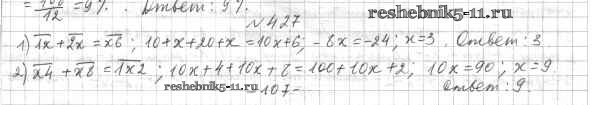 = 108/12 = 9%. Ответ: 9%.
№427 www.reshebnik5-11.ru
1) 1x + 2x = x6; 10+x+20+x=10x+6; -8x=-24; x=3. Ответ: 3
2) x4 + x8 = 1x2; 10x+4+10x+8=100+10x+2; 10x=90; x=9
reshebnik5-11.ru Ответ: 9.
107-